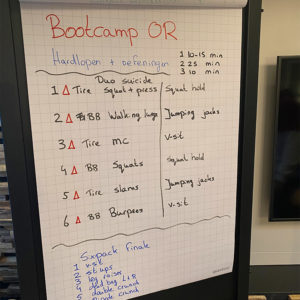 Bootcamp OR
Hardlopen + oefeningen
1 10-15 min
2 25 min
3 10 min
Duo suicide
1 Δ Tire Squat + press Squat hold
2 Δ BB Walking lunge Jumping jacks
3 Δ Tire mc V-sit
4 Δ BB Squats Squat hold
5 Δ Tire slams Jumping jacks
6 Δ BB Burpees V-sit
Sixpack Finale
1 V-sit
2 situps
3 leg raiser
4 L+R
5 double crunch
crunch